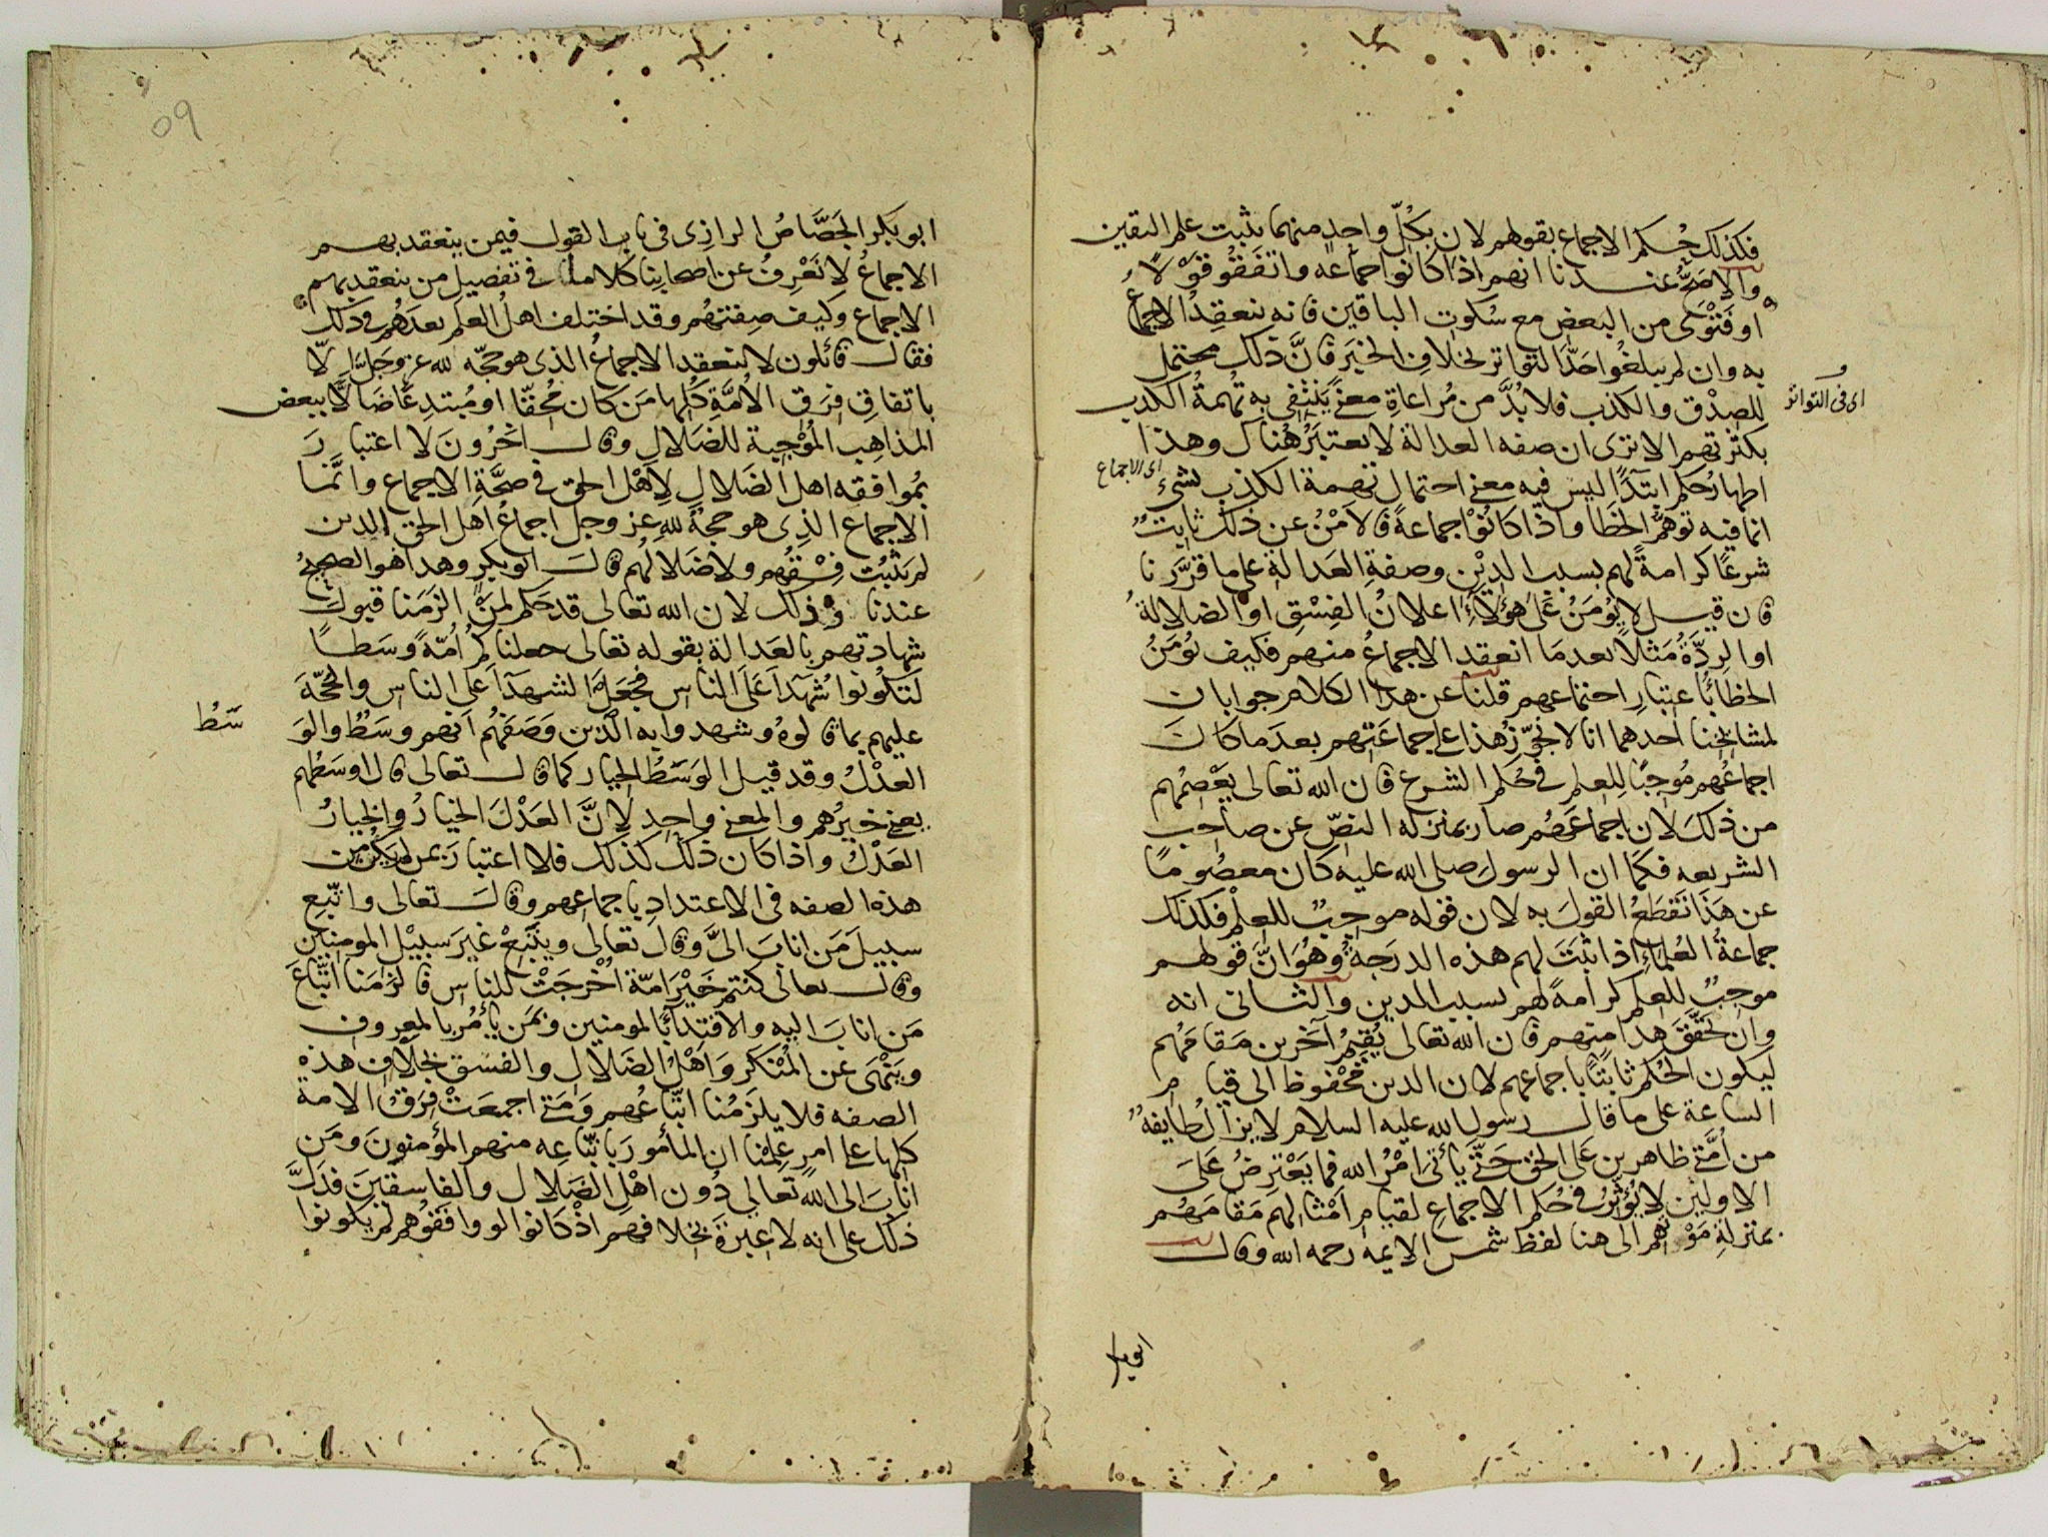 فكذلك حكم الاجماع بقولهم لان بكل واحد منهما يثبت علم اليقين
والاصح عندنا انهم اذا كانوا جماعة واتفقوا قولا
او فتوى من البعض مع سكوت الباقين فانه ينعقد الاجماع
به وان لم يبلغوا حد التواتر بخلاف الخبر فان ذلك محتمل
للصدق والكذب فلا بد من مراعاة معنى ينتفى به تهمة الكذب
اى فى التواتر
بكثرتهم الا ترى ان صفه العدالة لا يعتبر هناك وهذا
اى الاجماع
اظهار حكم ابتداء ليس فيه معنى احتمال تهمة الكذب بشىء
انما فيه توهم الخطا واذا كانوا جماعة فالامن عن ذلك ثابت
شرعا كرامة لهم بسبب الدين وصفة العدالة على ما قررنا
فان قيل لا يؤمن على هؤلاء اعلان الفسق او الضلالة
او الردة مثلا بعدما انعقد الاجماع منهم فكيف نؤمن
الخطا باعتبار اجتماعهم قلنا عن هذا الكلام جوابان
لمشايخنا احدهما انا لا نجوز هذا على جماعتهم بعد ما كان
اجماعهم موجبا للعلم فى حكم الشرع فان الله تعالى يعصمهم
من ذلك لان اجماعهم صار بمنزلة النص عن صاحب
الشريعه فكما ان الرسول صلى الله عليه كان معصوما
عن هذا نقطع القول به لان قوله موجب للعلم فكذلك
جماعة العلماء اذا ثبت لهم هذه الدرجة وهو ان قولهم
موجب للعلم كرامة لهم بسبب الدين والثانى انه
وان تحقق هذا منهم فان الله تعالى يقيم آخرين مقامهم
ليكون الحكم ثابتا باجماعهم لان الدين محفوظ الى قيام
الساعة على ما قال رسول الله عليه السلام لا يزال طايفة
من امتى ظاهرين على الحق حتى يأتى امر الله فما يعترض على
الاولين لا يؤثر فى حكم الاجماع لقيام امثالهم مقامهم
بمنزلة موتهم الى هنا لفظ شمس الايمه رحمه الله وقال
ابو بكر
٥٩
ابو بكر الجصاص الرازى فى باب القول فيمن ينعقد بهم
الاجماع لا نعرف عن اصحابنا كلاما فى تفصيل من ينعقد بهم
الاجماع وكيف صفتهم وقد اختلف اهل العلم بعدهم فى ذلك
فقال قائلون لا ينعقد الاجماع الذى هو حجة لله عز وجل الا
باتفاق فرق الامة كلها من كان محقا او مبتدعا ضالا ببعض
المذاهب الموجبة للضلال وقال اخرون لا اعتبار
بموافقه اهل الضلال لاهل الحق فى صحة الاجماع وانما
الاجماع الذى هو حجة لله عز وجل اجماع اهل الحق الذين
لم يثبت فسقهم ولا ضلالهم قال ابو بكر وهذا هو الصحيح
عندنا وذلك لان الله تعالى قد حكم لمن الزمنا قبول
شهادتهم بالعدالة بقوله تعالى جعلناكم امة وسطا
لتكونوا شهدا على الناس فجعل الشهدا على الناس والحجة
عليهم بما قالوه وشهدوا به الذين وصفهم انهم وسط والو
سط
العدل وقد قيل الوسط الخيار كما قال تعالى قال اوسطهم
يعنى خيرهم والمعنى واحد لان العدل الخيار والخيار
العدل واذا كان ذلك كذلك فلا اعتبار بمن لم يكن من
هذه الصفه فى الاعتداد باجماعهم وقال تعالى واتبع
سبيل من اناب الى وقال تعالى ويتبع غير سبيل المومنين
وقال تعالى كنتم خير امة اخرجت للناس فالزمنا اتباع
من اناب اليه والاقتداء بالمومنين وبمن يأمر بالمعروف
وينهى عن المنكر واهل الضلال والفسق بخلاف هذه
الصفه فلا يلزمنا اتباعهم ومتى اجمعت فرق الامة
كلها على امر علمنا ان المأمور باتباعه منهم المؤمنون ومن
اناب الى الله تعالى دون اهل الضلال والفاسقين فدل
ذلك على انه لا عبرة بخلافهم اذ كانوا لو وافقوهم لم يكونوا